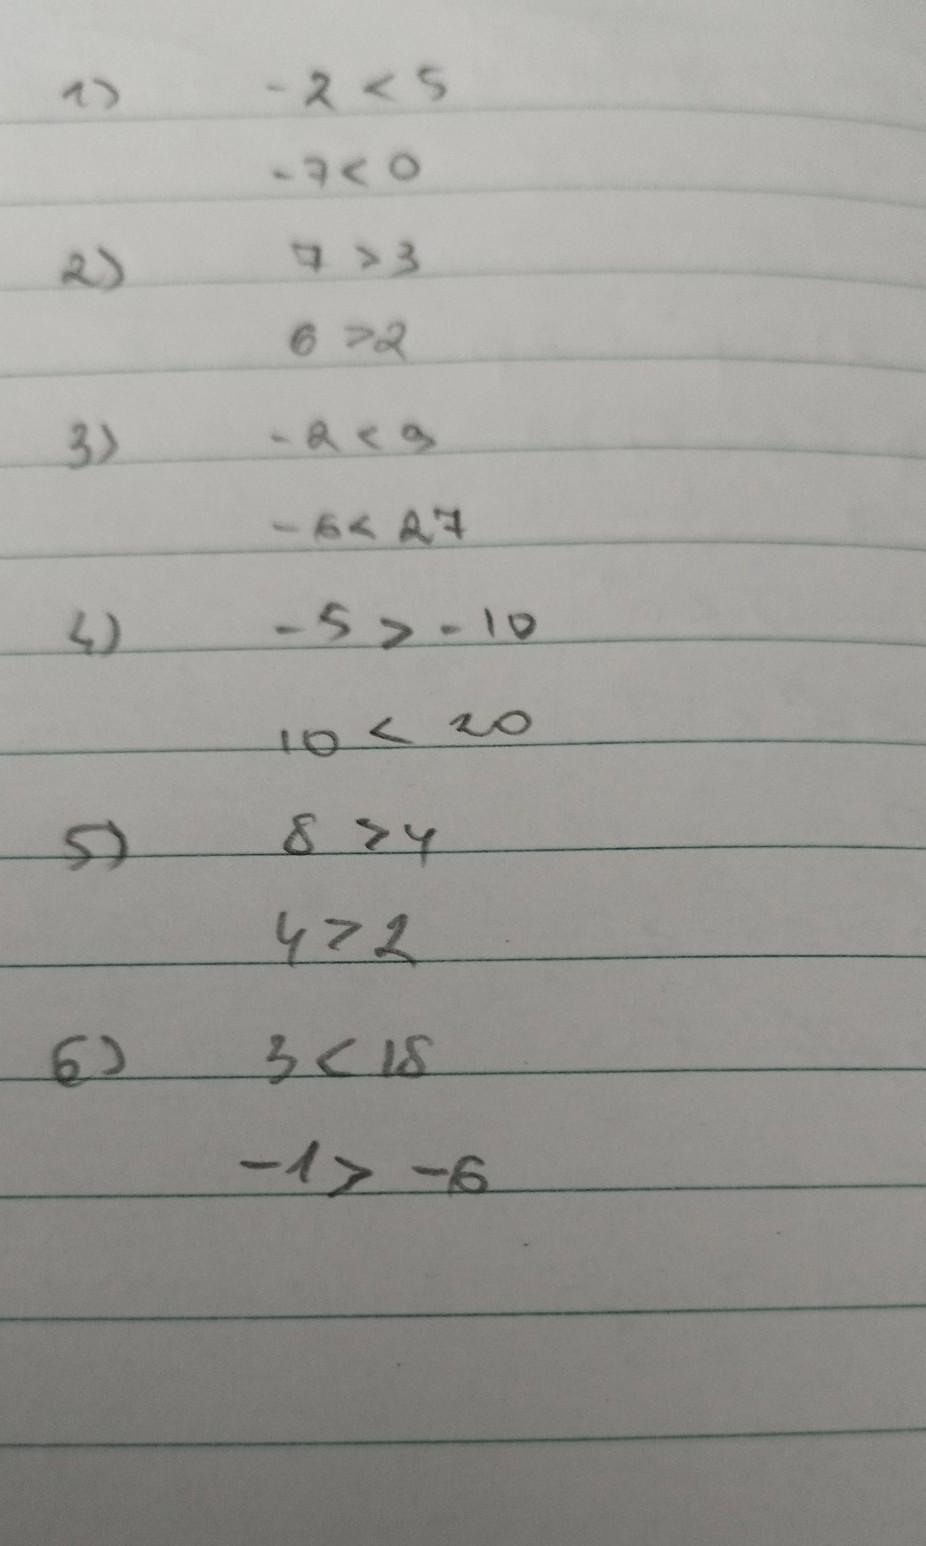 1) -2 < 5
-7 < 0
2) 7 > 3
6 > 2
3) -2 < 9
-6 < 27
4) -5 > -10
10 < 20
5) 8 > 4
4 > 2
6) 3 < 18
-1 > -6